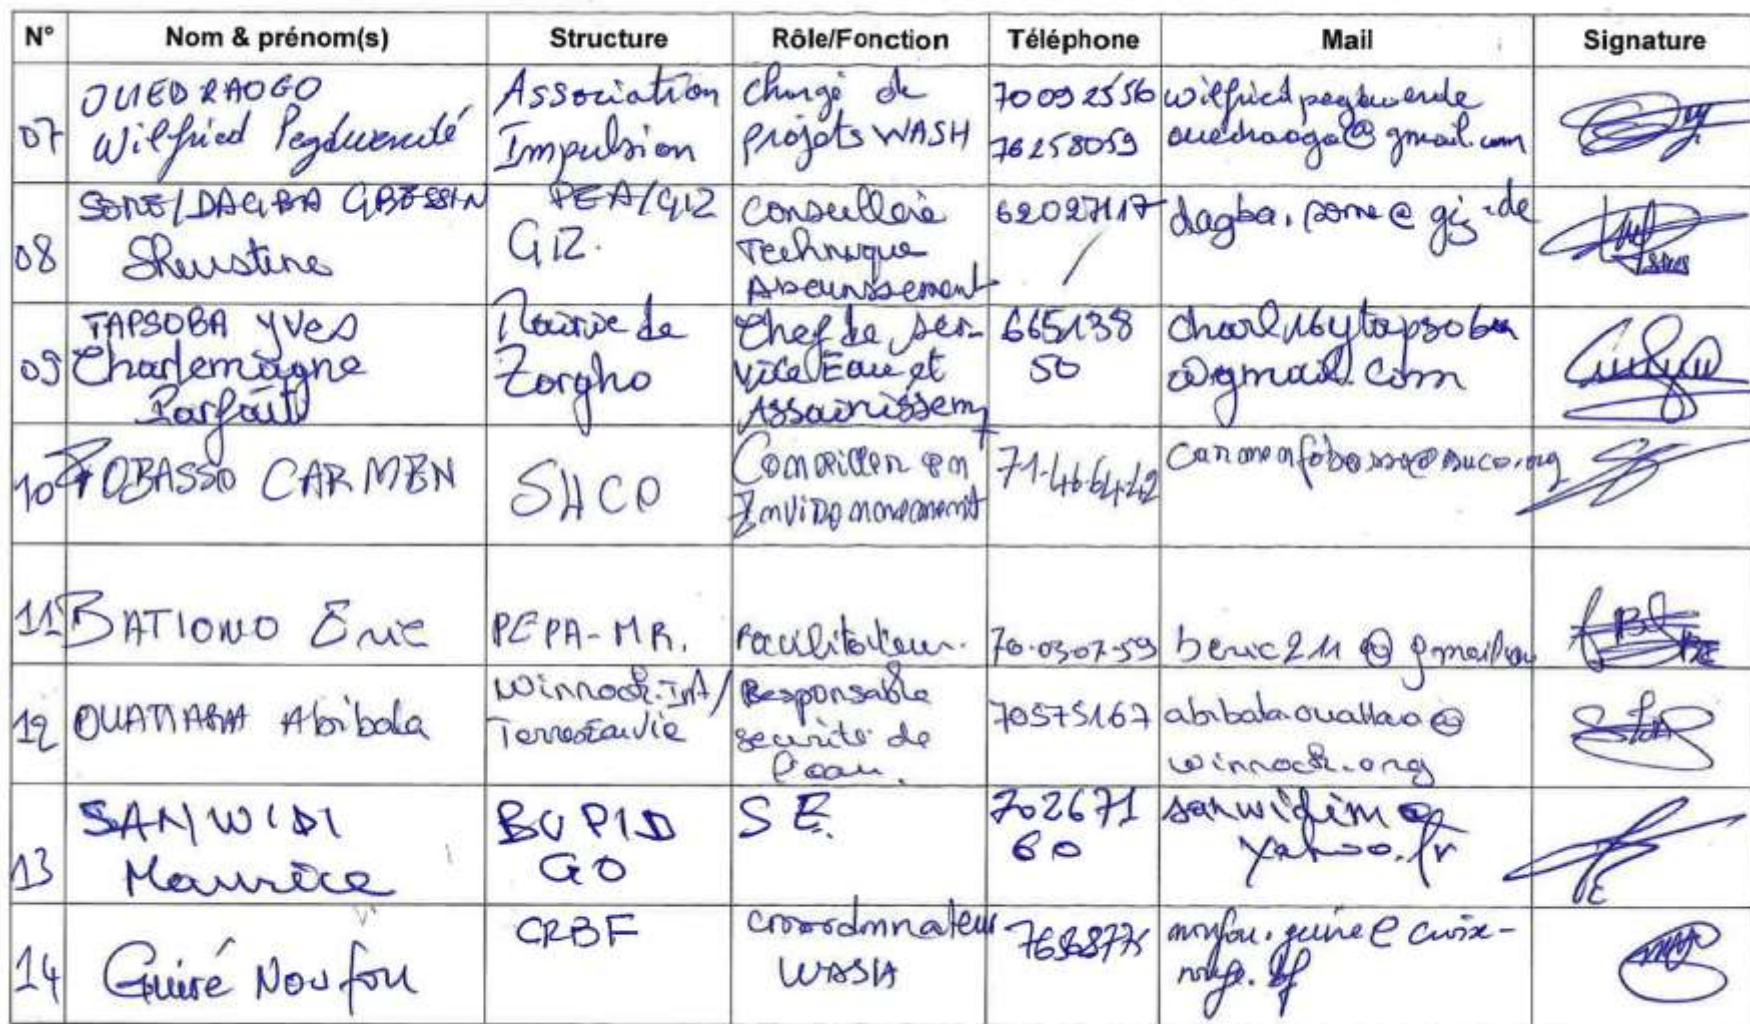 N° Nom & prénom(s) Structure Rôle/Fonction Téléphone Mail Signature
07 OUEDRAOGO Wilfried Pegdwendé
Association Impulsion
Chargé de projets WASH
70092556
76258059
wilfried pegdwende
ouedraogo@gmail.com
08 SORE/DAGBA GBESSIN
PEA/GIZ
GIZ.
Conseillère
Technique
Assainissement
62027117
/
dagba.sore@giz.de
09 TAPSOBA Yves
Charlemagne
Parfait
Mairie de
Zorgho
Chef de ser-
vice Eau et
Assainissem
665138
50
charl16ytapsoba
@gmail.com
10 FOBASSO CARMEN
SUCO
Conseiller en
Environnement
71-46-64-42
carmenfobasso@suco.org
11 BATIONO Eric
PEPA-MR.
Facilitateur.
70-0307-59
beric211@gmail.com
12 OUATTARA Abibata
Winrock.Int/
TerresEauVie
Responsable
securité de
l'eau.
70575167
abibata.ouattara@
winrock.org
13 SANWIDI
Maurice
BUPID
GO
SE.
702671
60
sanwidim@
yahoo.fr
14 Guiré Noufou
CRBF
Croordonnateur
WASH
noufou.guire@croix-
rouge.bf